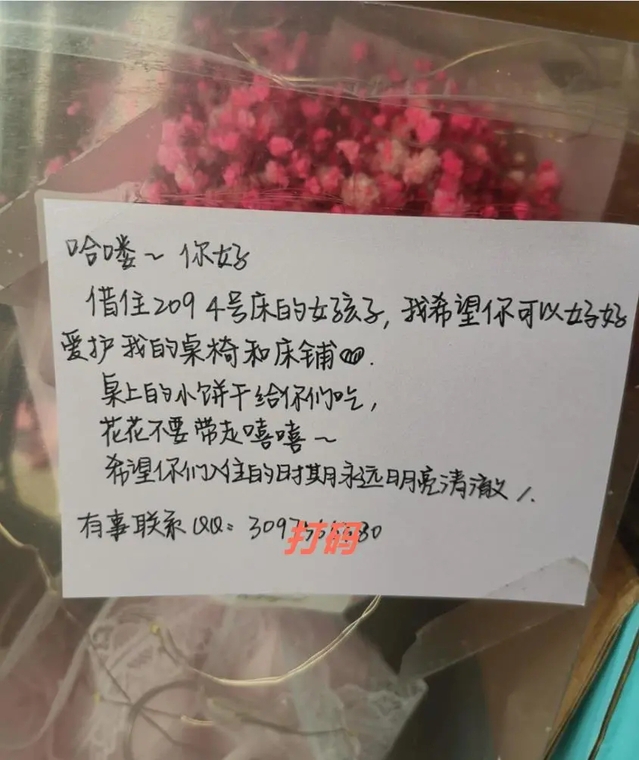 哈喽~ 你好
借住209 4号床的女孩子,我希望你可以好好
爱护我的桌椅和床铺
桌上的小饼干给你们吃,
花花不要带走嘻嘻~
希望你们入住的时期永远明亮清澈
有事联系QQ: 3097
打码
80